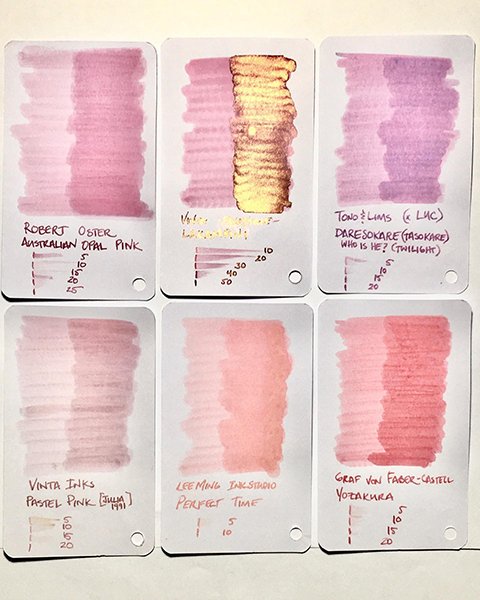 ROBERT OSTER
AUSTRALIAN OPAL PINK
5
10
15
20
25
10
20
30
40
50
TONO & LIMS (x LHC)
DARESOKARE (TASOKARE)
WHO IS HE? (TWILIGHT)
5
10
15
20
VINTA INKS
PASTEL PINK [JULIA 1991]
5
10
15
20
LEEMING INKSTUDIO
PERFECT TIME
5
10
GRAF VON FABER-CASTELL
YOZAKURA
5
10
15
20